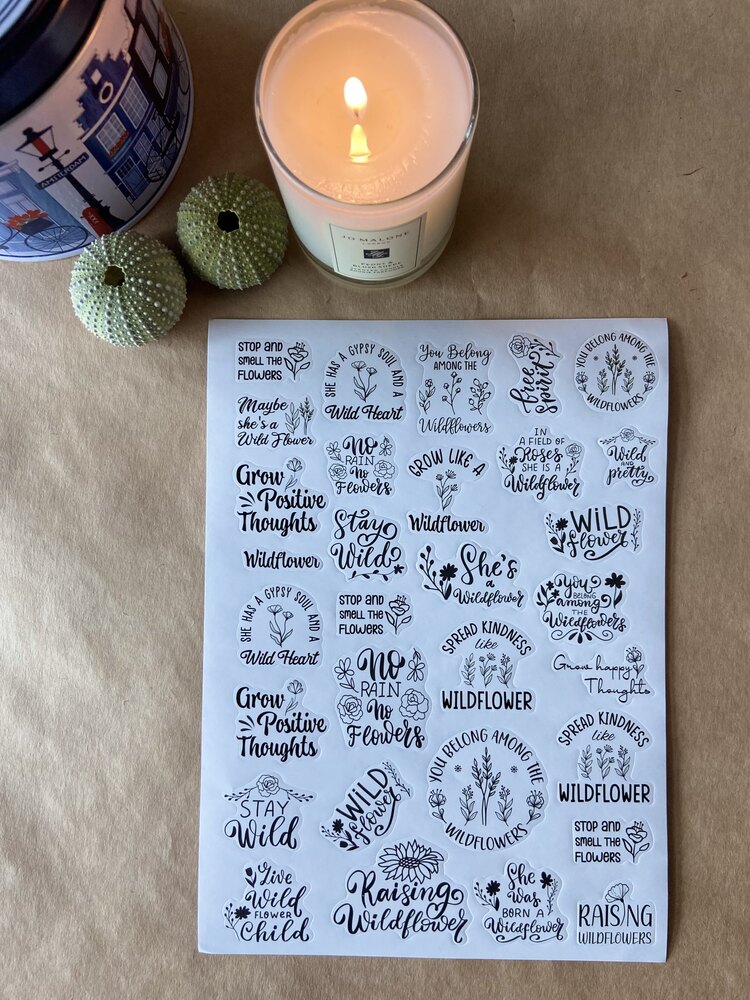 AMSTERDAM
JO MALONE
LONDON
PEONY &
BLUSH SUEDE
STOP AND
SMELL THE
FLOWERS
SHE HAS A GYPSY SOUL AND A
Wild Heart
You Belong
AMONG THE
Wildflowers
free
spirit
YOU BELONG AMONG THE
WILDFLOWERS
Maybe
she's a
Wild Flower
NO
RAIN
No
Flowers
GROW LIKE A
Wildflower
IN
A FIELD OF
Roses
SHE IS A
Wildflower
Wild
AND
pretty
Grow
Positive
Thoughts
Stay
Wild
WiLD
flower
Wildflower
She's
a
Wildflower
You
BELONG
among
THE
Wildflowers
SHE HAS A GYPSY SOUL AND A
Wild Heart
STOP AND
SMELL THE
FLOWERS
SPREAD KINDNESS
like
WILDFLOWER
Grow happy
Thoughts
NO
RAIN
No
Flowers
Grow
Positive
Thoughts
SPREAD KINDNESS
like
WILDFLOWER
YOU BELONG AMONG THE
WILDFLOWERS
STAY
Wild
WiLD
flower
STOP AND
SMELL THE
FLOWERS
Live
Wild
FLOWER
Child
Raising
Wildflower
She
Was
BORN A
Wildflower
RAISING
WILDFLOWERS